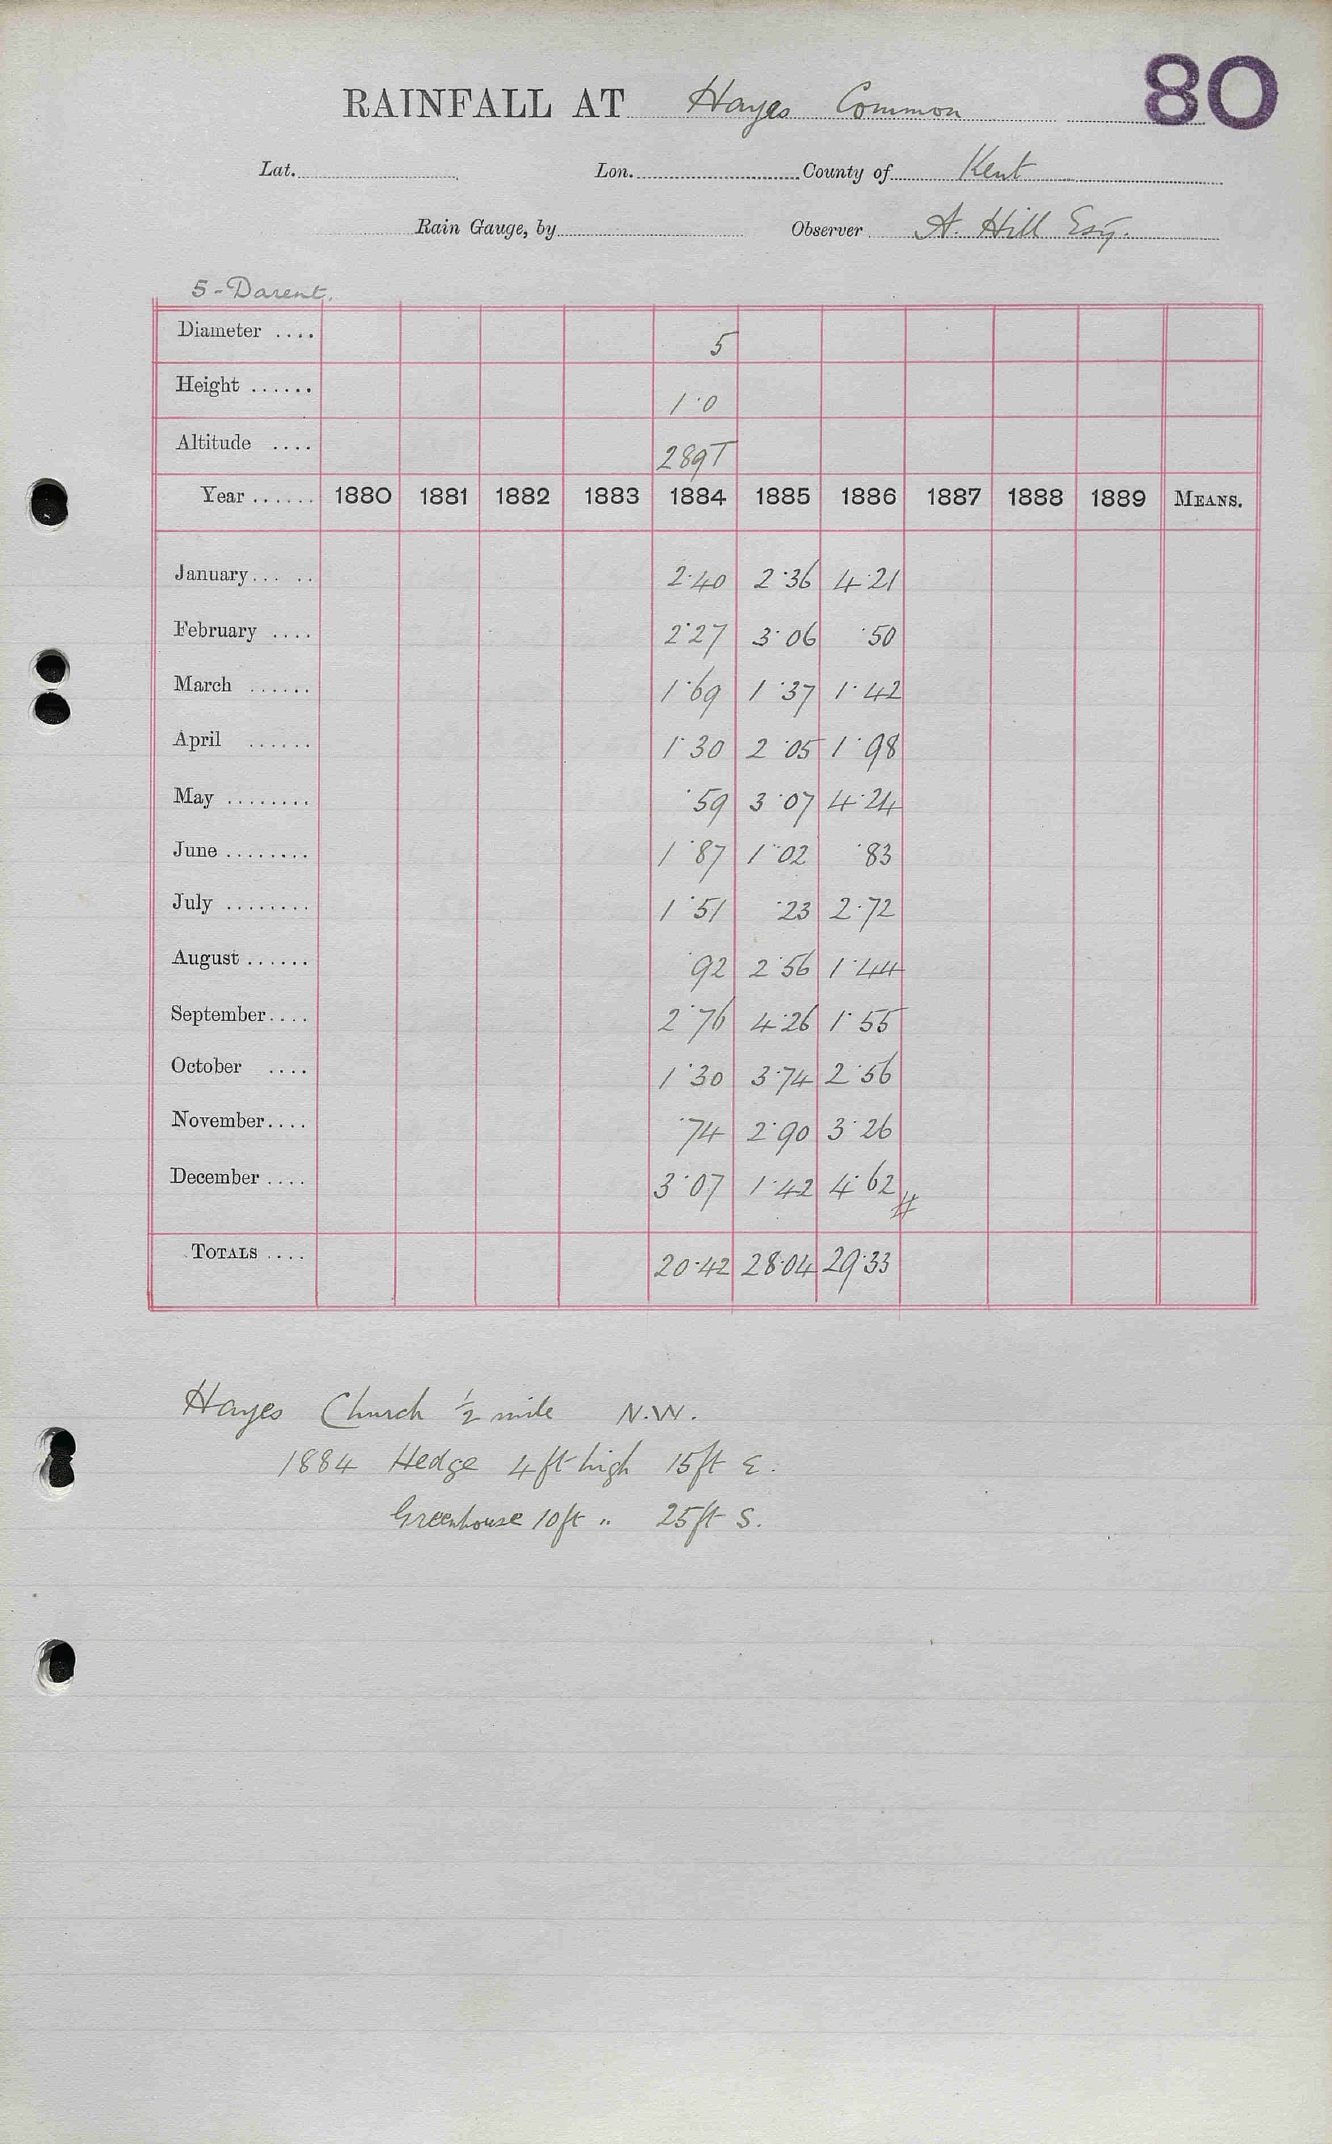 RAINFALL AT Hayes Common 80
Lat. Lon. County of Kent
Rain Gauge, by Observer A. Hill Esq.
5 - Darent.
Diameter .... 5
Height ...... 1·0
Altitude .... 289T
Year ...... 1880 1881 1882 1883 1884 1885 1886 1887 1888 1889 MEANS.
January... .. 2·40 2·36 4·21
February .... 2·27 3·06 ·50
March ...... 1·69 1·37 1·42
April ...... 1·30 2·05 1·98
May ........ ·59 3·07 4·24
June ........ 1·87 1·02 ·83
July ........ 1·51 ·23 2·72
August ...... ·92 2·56 1·44
September.... 2·76 4·26 1·55
October .... 1·30 3·74 2·56
November.... ·74 2·90 3·26
December .... 3·07 1·42 4·62 #
TOTALS .... 20·42 28·04 29·33
Hayes Church ½ mile N.W.
1884 Hedge 4ft high 15ft E.
Greenhouse 10ft " 25ft S.